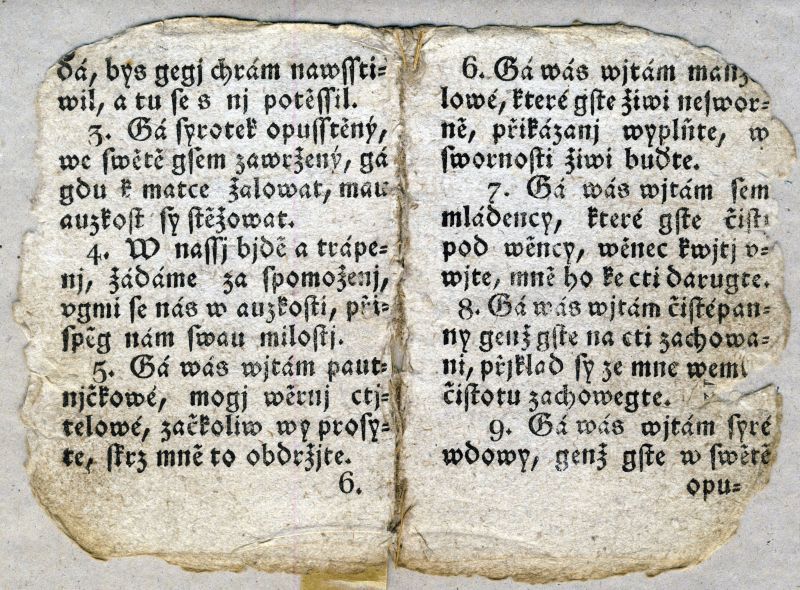 dá, bys gegj chrám nawssti-
wil, a tu se s nj potěssil.
3. Gá syrotek opusstěný,
we swětě gsem zawržený, gá
gdu k matce žalowat, mau
auzkost sy stěžowat.
4. W nassj bjdě a trápe-
nj, žádáme za spomoženj,
vgmi se nás w auzkosti, při-
spěg nám swau milostj.
5. Gá wás wjtám paut-
njčkowé, mogj wěrnj ctj-
telowé, začkoliw wy prosy-
te, skrz mně to obdržjte.
6.
6. Gá wás wjtám manž
lowé, které gste žiwi neswor-
ně, přikázanj wyplňte, w
swornosti žiwi buďte.
7. Gá wás wjtám sem
mládency, které gste čisti
pod wěncy, wěnec kwjtj v-
wjte, mně ho ke cti darugte.
8. Gá wás wjtám čistépan-
ny genž gste na cti zachowa-
ni, přjklad sy ze mne weml
čistotu zachowegte.
9. Gá wás wjtám syré
wdowy, genž gste w swětě
opu-